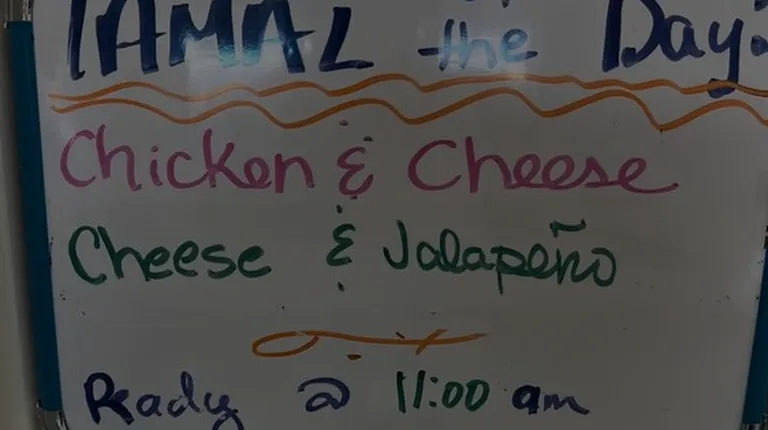 TAMAL of the Day:
Chicken & Cheese
Cheese & Jalapeño
Ready @ 11:00 am